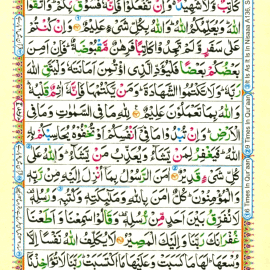 كَاتِبٌ وَّلَا شَهِيْدٌ ۬ وَاِنْ تَفْعَلُوْا فَاِنَّهٗ فُسُوْقٌۢ بِكُمْ ؕ وَاتَّقُوا
اللّٰهَ ؕ وَيُعَلِّمُكُمُ اللّٰهُ ؕ وَاللّٰهُ بِكُلِّ شَيْءٍ عَلِيْمٌ وَاِنْ كُنْتُمْ
عَلٰى سَفَرٍ وَّلَمْ تَجِدُوْا كَاتِبًا فَرِهٰنٌ مَّقْبُوْضَةٌ ؕ فَاِنْ اَمِنَ
بَعْضُكُمْ بَعْضًا فَلْيُؤَدِّ الَّذِى اؤْتُمِنَ اَمَانَتَهٗ وَلْيَتَّقِ اللّٰهَ
رَبَّهٗ ؕ وَلَا تَكْتُمُوا الشَّهَادَةَ ؕ وَمَنْ يَّكْتُمْهَا فَاِنَّهٗۤ اٰثِمٌ قَلْبُهٗ ؕ
وَاللّٰهُ بِمَا تَعْمَلُوْنَ عَلِيْمٌ لِلّٰهِ مَا فِى السَّمٰوٰتِ وَمَا فِى
الْاَرْضِ ؕ وَاِنْ تُبْدُوْا مَا فِىْۤ اَنْفُسِكُمْ اَوْ تُخْفُوْهُ يُحَاسِبْكُمْ بِهِ
اللّٰهُ ؕ فَيَغْفِرُ لِمَنْ يَّشَآءُ وَيُعَذِّبُ مَنْ يَّشَآءُ ؕ وَاللّٰهُ عَلٰى
كُلِّ شَيْءٍ قَدِيْرٌ اٰمَنَ الرَّسُوْلُ بِمَاۤ اُنْزِلَ اِلَيْهِ مِنْ رَّبِّهٖ
وَالْمُؤْمِنُوْنَ ؕ كُلٌّ اٰمَنَ بِاللّٰهِ وَمَلٰٓئِكَتِهٖ وَكُتُبِهٖ وَرُسُلِهٖ
لَا نُفَرِّقُ بَيْنَ اَحَدٍ مِّنْ رُّسُلِهٖ وَقَالُوْا سَمِعْنَا وَاَطَعْنَا
غُفْرَانَكَ رَبَّنَا وَاِلَيْكَ الْمَصِيْرُ لَا يُكَلِّفُ اللّٰهُ نَفْسًا اِلَّا
وُسْعَهَا ؕ لَهَا مَا كَسَبَتْ وَعَلَيْهَا مَا اكْتَسَبَتْ ؕ رَبَّنَا لَا تُؤَاخِذْنَاۤ
It Is As It Is In Nesaa A 136
29 Times In Qur'aan
16 Times In Qur'aan